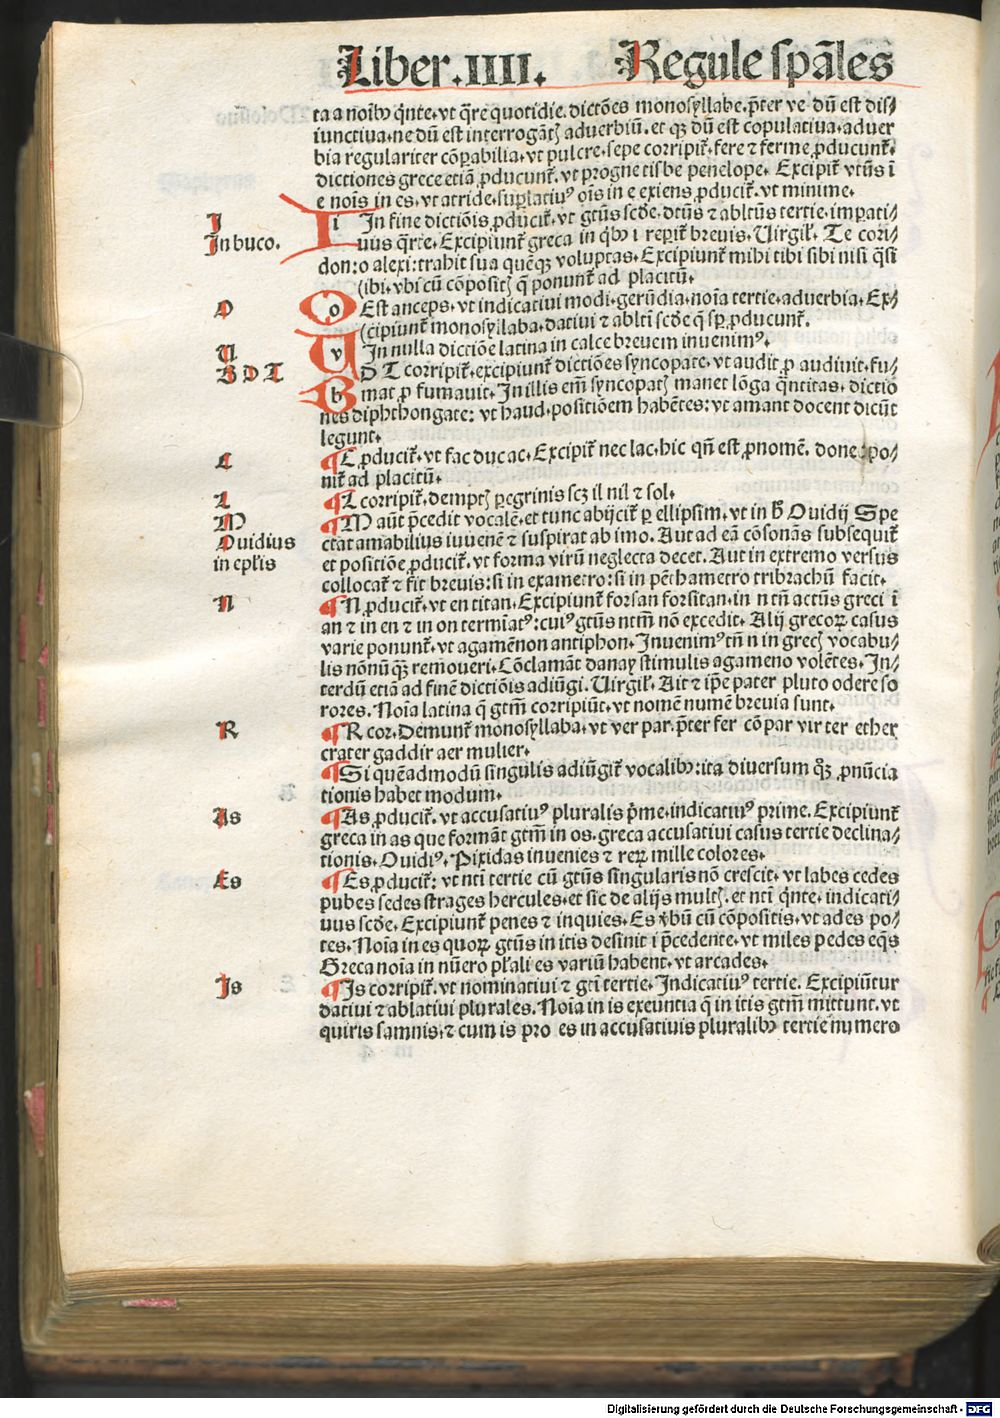 Liber.IIII. Regule sp̄ales
ta a noīb9 q̄nte.vt q̄re quotidie.dictōes monosyllabe.p̄ter ve dū est dis⸗
iunctiua.ne dū est interrogātꝭ aduerbiū.et qꝫ dū est copulatiua.aduer
bia regulariter cōpabilia.vt pulcre.sepe corripit̄.fere ⁊ ferme ꝓducunt̄.
dictiones grece etiā ꝓducunt̄.vt progne tisbe penelope. Excipit̄ vtūs ī
e noīs in es.vt atride.suꝑlatiu9 oīs in e exiens ꝓducit̄.vt minime.
I
In buco.
I i In fine dictiōis ꝓducit̄.vt gtūs scd̄e.dtūs ⁊ abltūs tertie.impati⸗
uus q̄rte.Excipiunt̄ greca in qb9 i reꝑit̄ breuis.Uirgil̄. Te cori⸗
don:o alexi:trahit sua quēqꝫ voluptas.Excipiunt̄ mihi tibi sibi nisi q̄si
(ibi.vbi cū cōpositꝭ q̄ ponunt̄ ad placitū.
O
o Est anceps.vt indicatiui modi.gerūdia.noīa tertie.aduerbia.Ex⸗
(cipiunt̄ monosyllaba.datiui ⁊ abltī scd̄e q̄ sꝑ ꝓducunt̄.
U
U v In nulla dictiōe latina in calce breuem inuenim9.
B D T
B b D T corripit̄.excipiunt̄ dictiōes syncopate.vt audit ꝓ audiuit.fu⸗
mat ꝓ fumauit.In illis em̄ syncopatꝭ manet lōga q̄ntitas.dictio
nes diphthongate: vt haud.positiōem habētes:vt amant docent dicūt
legunt.
C
¶C ꝓducit̄.vt fac duc ac.Excipit̄ nec lac.hic qn̄ est ꝓnomē. donec po⸗
nit̄ ad placitū.
L
¶L corripit̄.demptꝭ ꝑegrinis scꝫ il nil ⁊ sol.
M
¶M aūt p̄cedit vocalē.et tunc abijcit̄ ꝑ ellipsim.vt in ħ Ouidij Spe
Ouidius
ctat amabilius iuuenē ⁊ suspirat ab imo. Aut ad eā cōsonās subsequit̄
in ep̄lis
et positiōe ꝓducit̄.vt forma virū neglecta decet.Aut in extremo versus
collocat̄ ⁊ fit breuis:si in exametro:si in pēthametro tribrachū facit.
N
¶N ꝓducit̄.vt en titan.Excipiunt̄ forsan forsitan.in n tn̄ actūs greci ī
an ⁊ in en ⁊ in on termīat9:cui9 gtūs ntm̄ nō excedit. Alij grecoꝝ casus
varie ponunt̄.vt agamēnon antiphon.Inuenim9 tn̄ n in grecꝭ vocabu⸗
lis nōnūqꝫ remoueri.Cōclamāt danay stimulis agameno volētes.In⸗
terdū etiā ad finē dictiōis adiūgi.Uirgil̄. Ait ⁊ ip̄e pater pluto odere so
rores.Noīa latina q̄ gtm̄ corripiūt.vt nomē numē breuia sunt.
R
¶R cor.Demunt̄ monosyllaba.vt ver par.p̄ter fer cō par vir ter ether
crater gaddir aer mulier.
¶Si quēadmodū singulis adiūgit̄ vocalib9:ita diuersum qꝫ ꝓnūcia
tionis habet modum.
As
¶As ꝓducit̄.vt accusatiu9 pluralis p̄me.indicatiu9 prime. Excipiunt̄
greca in as que formāt gtm̄ in os.greca accusatiui casus tertie declina⸗
tionis.Ouidi9. Pixidas inuenies ⁊ reꝝ mille colores.
Es
¶Es ꝓducit̄: vt ntī tertie cū gtūs singularis nō crescit.vt labes cedes
pubes sedes strages hercules.et sic de alijs multꝭ.et ntī q̄nte.indicati⸗
uus scd̄e.Excipiunt̄ penes ⁊ inquies.Es v̄bū cū cōpositis.vt ades po⸗
tes.Noīa in es quoꝝ gtūs in itis desinit i p̄cedente.vt miles pedes eq̄s
Greca noīa in nūero pl̄ali es variū habent.vt arcades.
Is
¶Is corripit̄.vt nominatiui ⁊ gtī tertie. Indicatiu9 tertie. Excipiūtur
datiui ⁊ ablatiui plurales. Noīa in is exeūntia q̄ in itis gtm̄ mittunt.vt
quiris samnis.⁊ cum is pro es in accusatiuis pluralib9 tertie numero
Digitalisierung gefördert durch die Deutsche Forschungsgemeinschaft - DFG